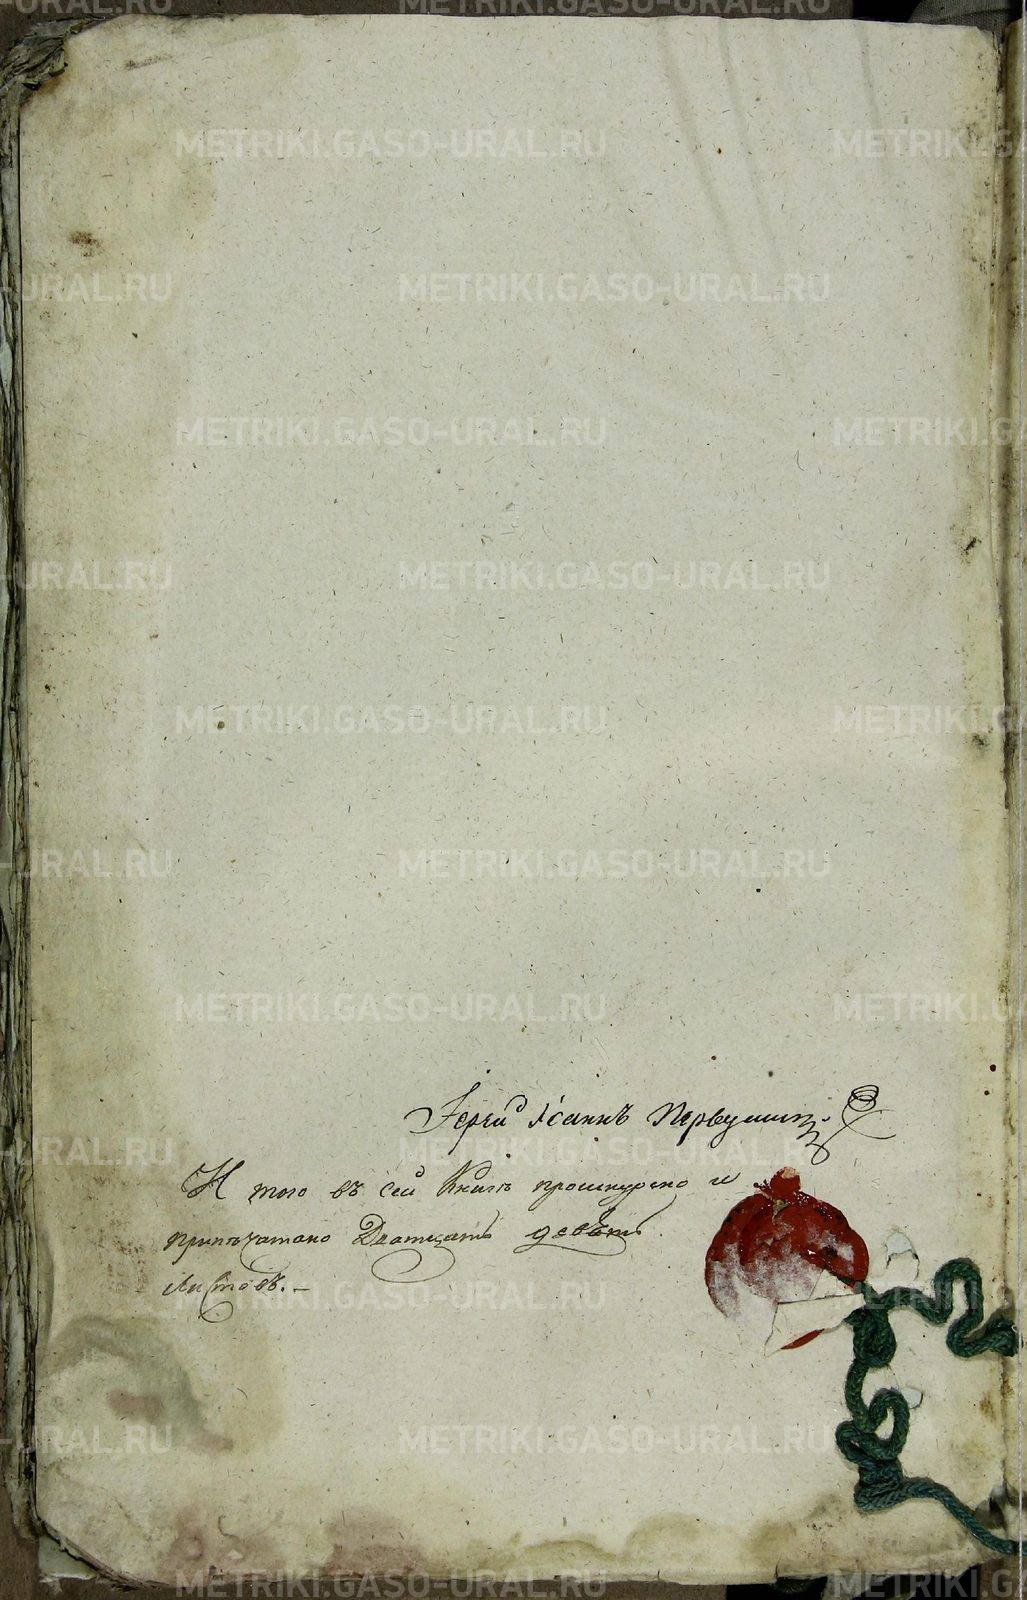 METRIKI.GASO-URAL.RU
Іерей Іоаннъ Первушинъ
И того въ сей Книгѣ прошнурено и
припечатано Дватцать девѣть
листовъ. –